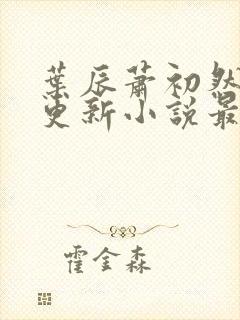 葉辰蕭初然
更新小說最
霍金森